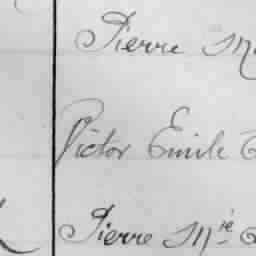 Pierre
Victor Emile
Pierre Mie